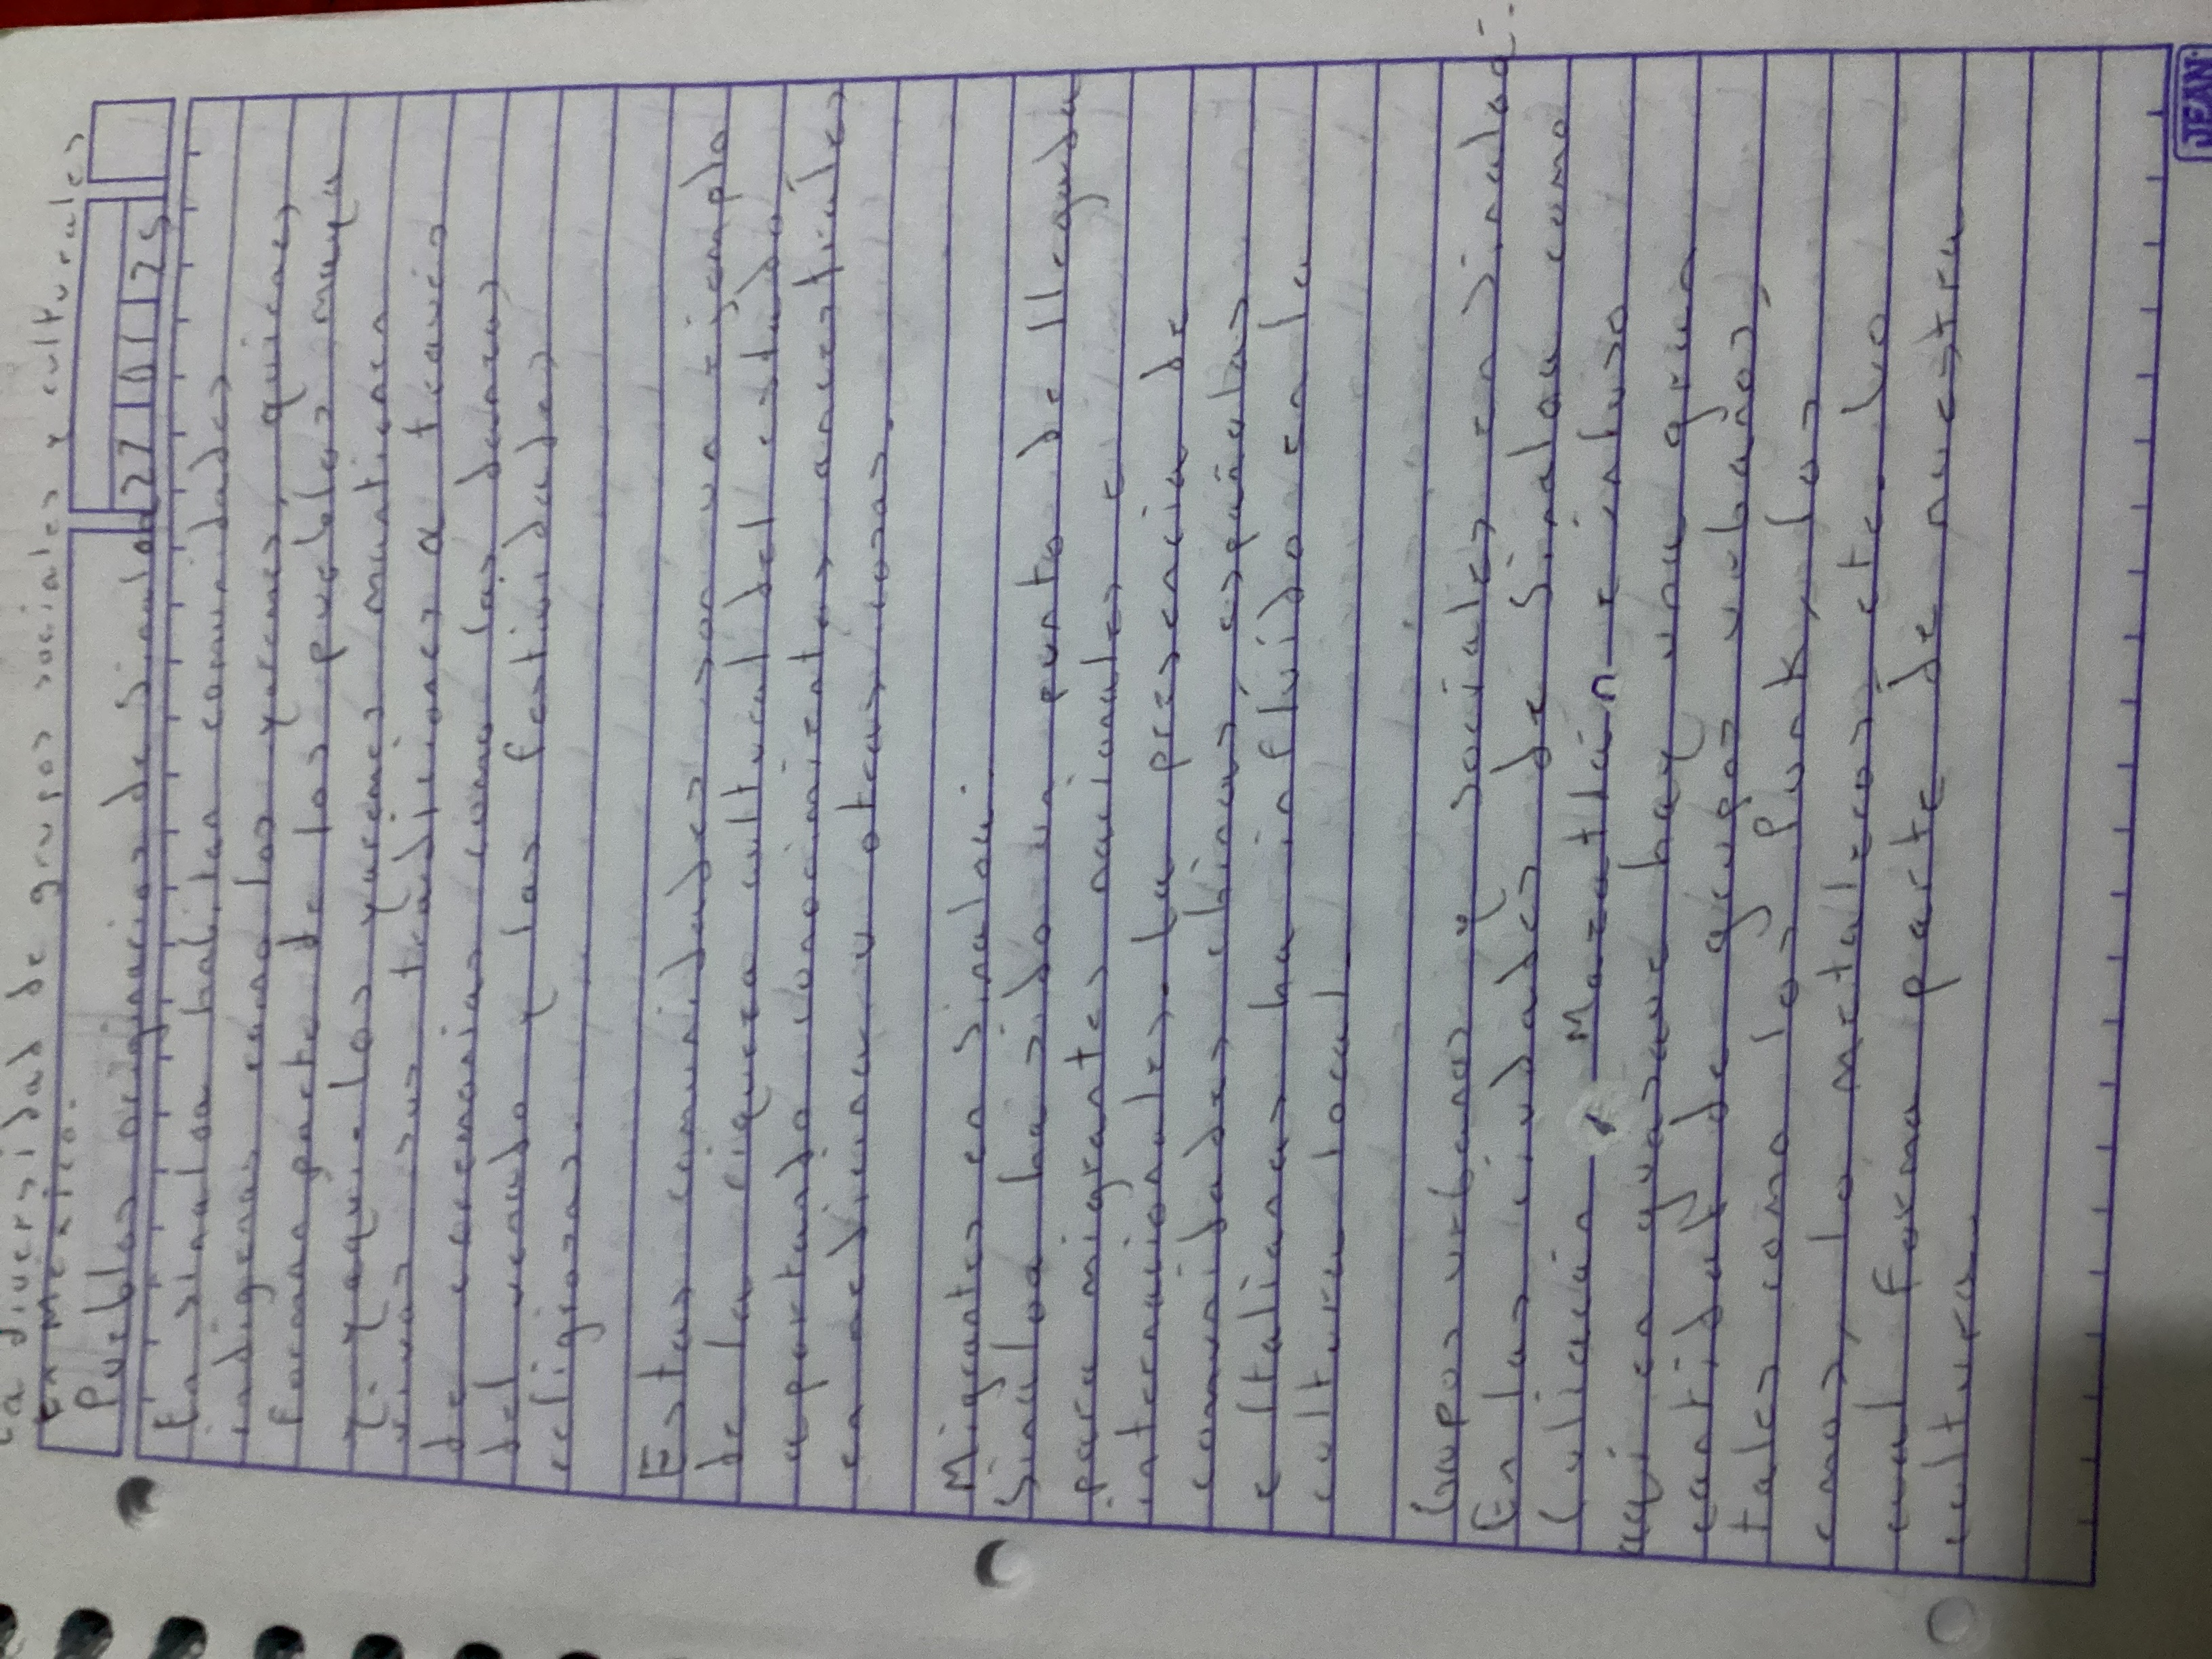 La diversidad de grupos sociales y culturales
en México.
Pueblos originarios de Sinaloa
22 01 25
En sinaloa habitan comunidades
indigenas como los yoremes, quienes
forman parte de los pueblos mayo
y yaqui. Los yoremes mantienen
vivas sus tradiciones a traves
de ceremonias como las danzas
del venado y las festividades
religiosas.
Estas comunidades son un ejemplo
de la riqueza cultural del estado
aportando conocimientos ancestriales
en medicina u otras cosas.
Migantes en sinaloa.
Sinaloa ha sido un punto de llegada
para migrantes nacionales e
internacionales. La presencia de
comunidades chinas, españolas
e italianas ha influido en la
cultura local.
Gupos urbanos y sociales en Sinaloa:
En las ciudades de Sinaloa como
Culiacán, Mazatlán e inluso
aqui en guasave hay una gran
cantidad de grupos urbanos,
tales como los Punk, los
emos, lo metaleros etc. Lo
cual forma parte de nuestra
cultura.
JEAN